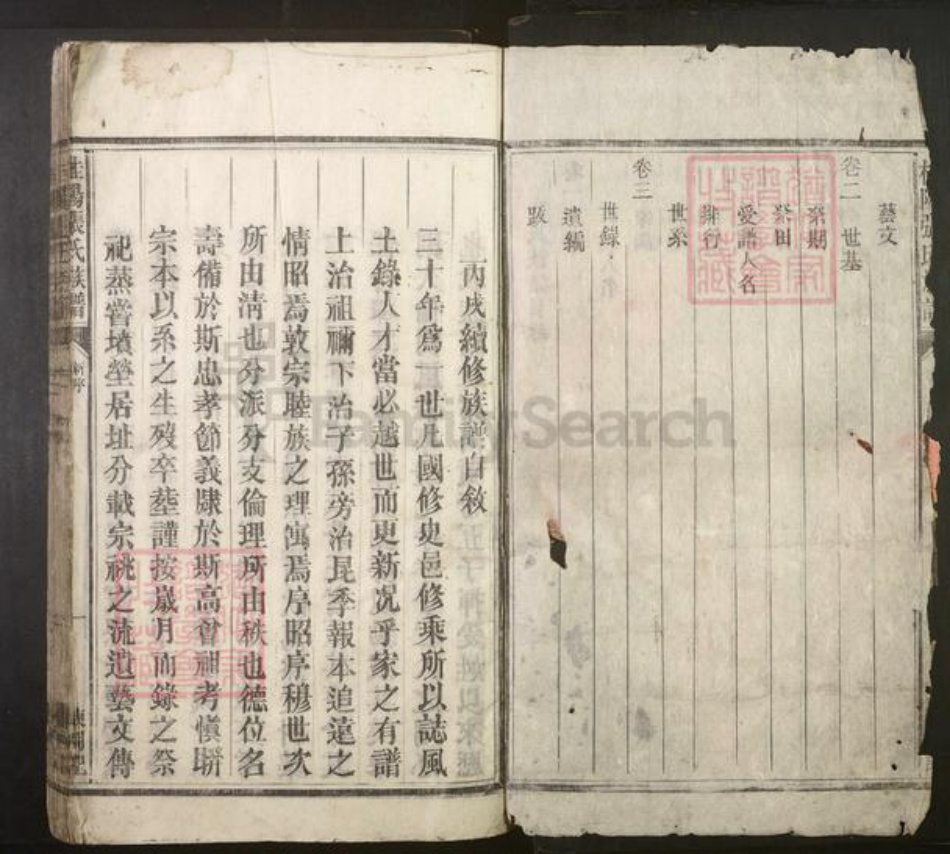 藝文
卷二 世基
祭期
祭田
愛譜人名
班行
世系
卷三
世錄
遺編
跋
丙戌續修族譜自敘
三十年爲一世凡國修史邑修乘所以誌風
土錄人才當必越世而更新况乎家之有譜
上治祖禰下治子孫旁治昆季報本追遠之
情昭焉敦宗睦族之理寓焉序昭序穆世次
所由淸也分派分支倫理所由秩也德位名
壽備於斯忠孝節義隷於斯高曾祖考愼聯
宗本以系之生殁卒塟謹按歲月而錄之祭
祀蒸嘗墳塋居址分載宗祧之流遺藝文傳
桂陽張氏族譜
新序
FamilySearch